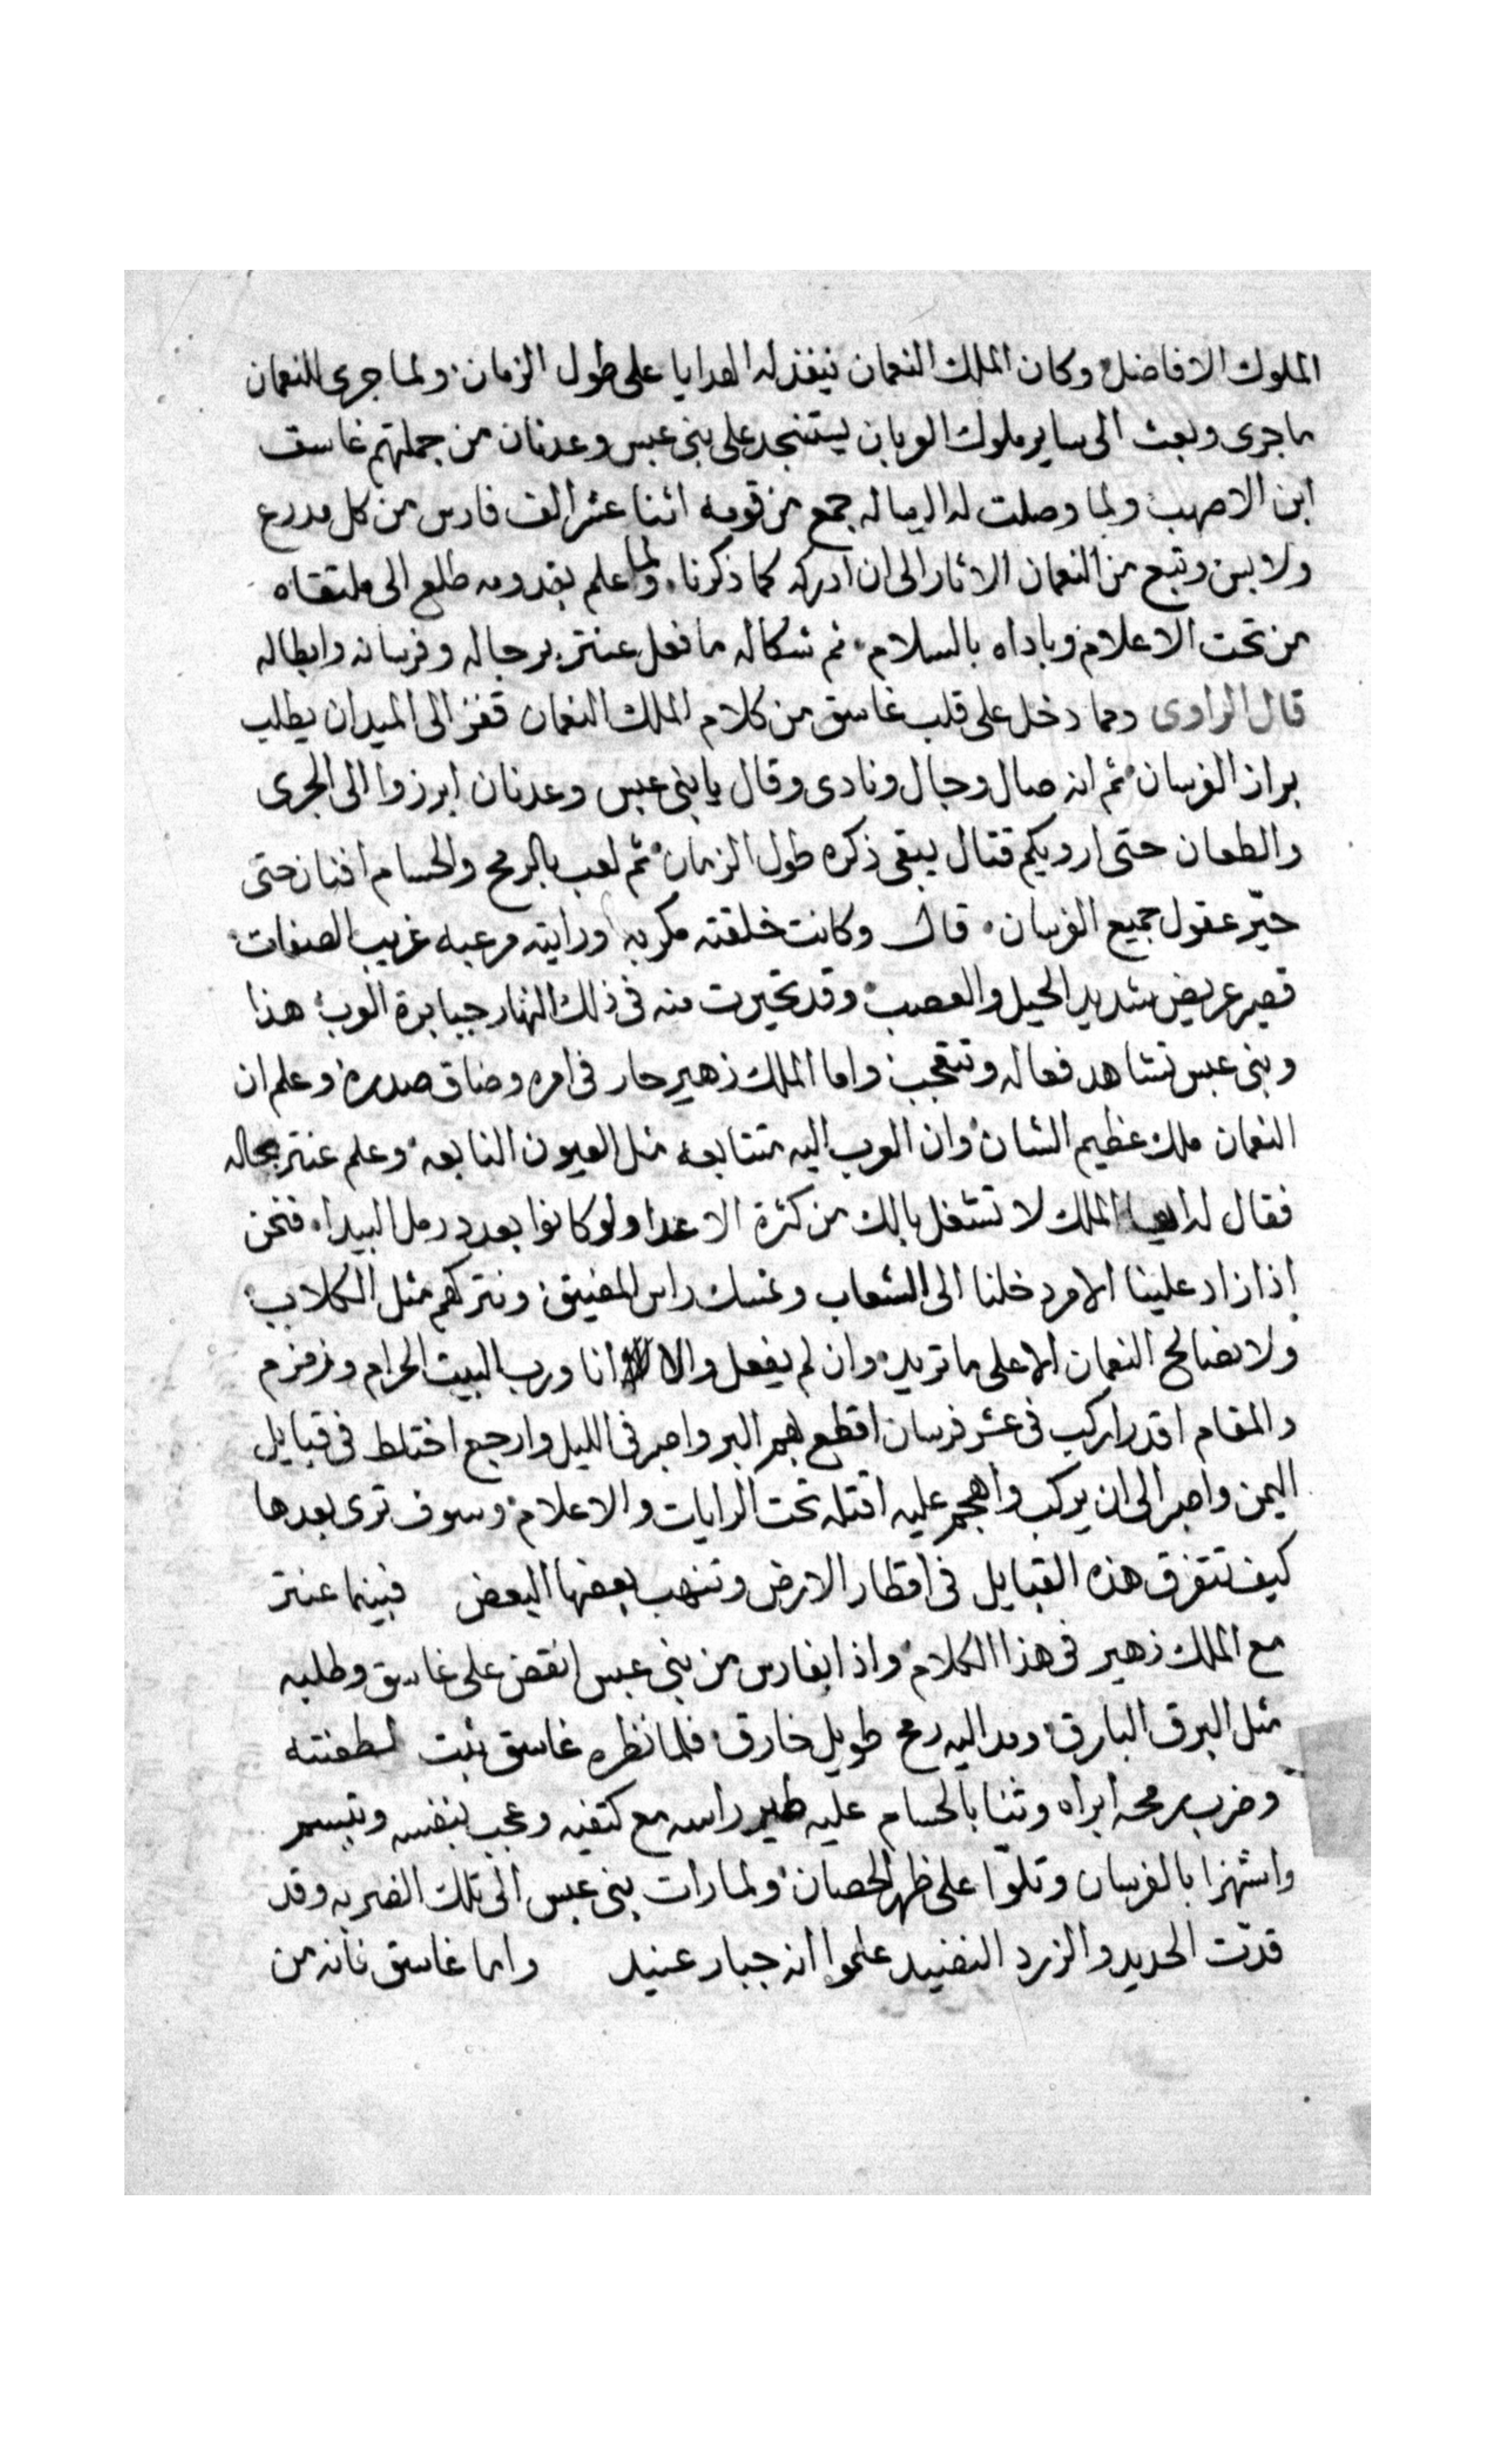 الملوك الافاضل وكان الملك النعمان ينفذ له الهدايا على طول الزمان ولما جرى للنعمان
ما جرى وبعث الى ساير ملوك العربان يستنجد على بني عبس وعدنان من جملتهم غاسق
ابن الاصهب ولما وصلت له الرساله جمع من قومه اثنا عشر الف فارس من كل مدرع
ولابس وتبع من النعمان الاثار الى ان ادركه كما ذكرنا ولما علم بقدومه طلع الى ملتقاه
من تحت الاعلام وباداه بالسلام ثم شكا له ما فعل عنتر برجاله وفرسانه وابطاله
قال الراوى ومما دخل على قلب غاسق من كلام الملك النعمان قفز الى الميدان يطلب
براز الفرسان ثم انه صال وجال ونادى وقال يا بني عبس وعدنان ابرزوا الى الجرى
والطعان حتى اوريكم قتال يبقى ذكره طول الزمان ثم لعب بالرمح والحسام افنان حتى
حيّر عقول جميع الفرسان قال وكانت خلقته مكربه ورايته مرعبه غريب الصفات
قصير عريض شديد الحيل والعصب وقد تحيرت منه في ذلك النهار جبابرة العرب هذا
وبني عبس تشاهد فعاله وتتعجب واما الملك زهير حار في امره وضاق صدره وعلم ان
النعمان ملك عظيم الشان وان العرب اليه متتابعه مثل العيون النابعه وعلم عنتر بحاله
فقال له ايها الملك لا تشغل بالك من كثرة الاعدا ولو كانوا بعدد رمل البيداء فنحن
اذا زاد علينا الامر دخلنا الى الشعاب ونمسك راس المضيق ونتركهم مثل الكلاب
ولا نصالح النعمان الا على ما تريد وان لم يفعل والا انا ورب البيت الحرام وزمزم
والمقام اقدر اركب في عشر فرسان اقطع بهم البر واصبر في الليل وارجع اختلط في قبايل
اليمن واصبر الى ان يركب واهجم عليه اقتله تحت الرايات والاعلام وسوف ترى بعدها
كيف تتفرق هذه القبايل في اقطار الارض وتنهب بعضها البعض فبينما عنتر
مع الملك زهير في هذا الكلام واذا بفارس من بني عبس انقض على غاسق وطلبه
مثل البرق البارق ومد اليه رمح طويل خارق فلما نظره غاسق ثبت لطعنته
وضرب برمحه ابراه وثنا بالحسام عليه طير راسه مع كتفيه وعجب بنفسه وتبسم
واستهزا بالفرسان وتلوّا على ظهر الحصان ولما رات بني عبس الى تلك الضربه وقد
قدّت الحديد والزرد النضيد علموا انه جبار عنيد واما غاسق فانه من